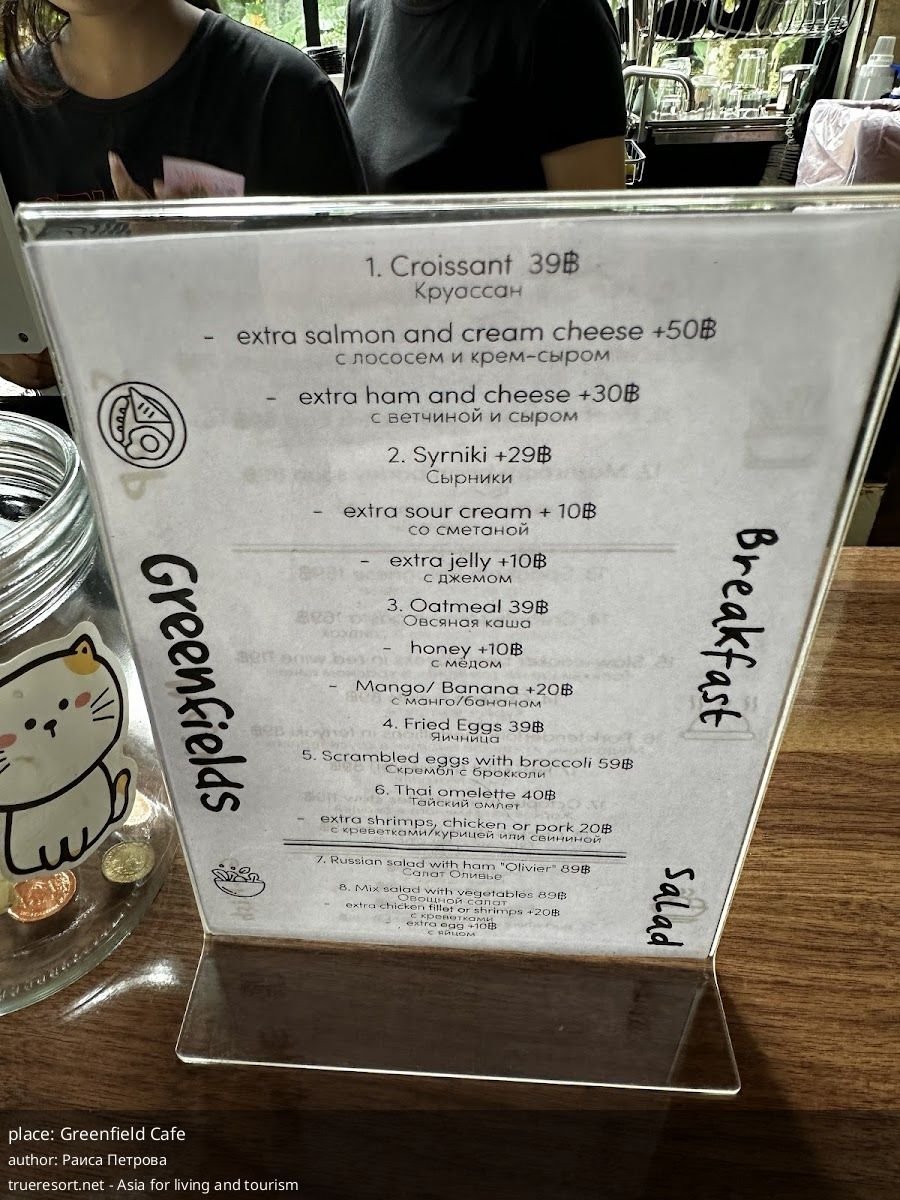 1. Croissant 39฿
Круассан
- extra salmon and cream cheese +50฿
с лососем и крем-сыром
- extra ham and cheese +30฿
с ветчиной и сыром
2. Syrniki +29฿
Сырники
- extra sour cream + 10฿
со сметаной
- extra jelly +10฿
с джемом
3. Oatmeal 39฿
Овсяная каша
- honey +10฿
с мёдом
- Mango/ Banana +20฿
с манго/бананом
4. Fried Eggs 39฿
Яичница
5. Scrambled eggs with broccoli 59฿
Скрембл с брокколи
6. Thai omelette 40฿
Тайский омлет
- extra shrimps, chicken or pork 20฿
с креветками/курицей или свининой
7. Russian salad with ham "Olivier" 89฿
Салат Оливье
8. Mix salad with vegetables 89฿
Овощной салат
- extra chicken fillet or shrimps +20฿
с креветками
extra egg +10฿
с яйцом
Greenfields
Breakfast
Salad
place: Greenfield Cafe
author: Раиса Петрова
trueresort.net - Asia for living and tourism